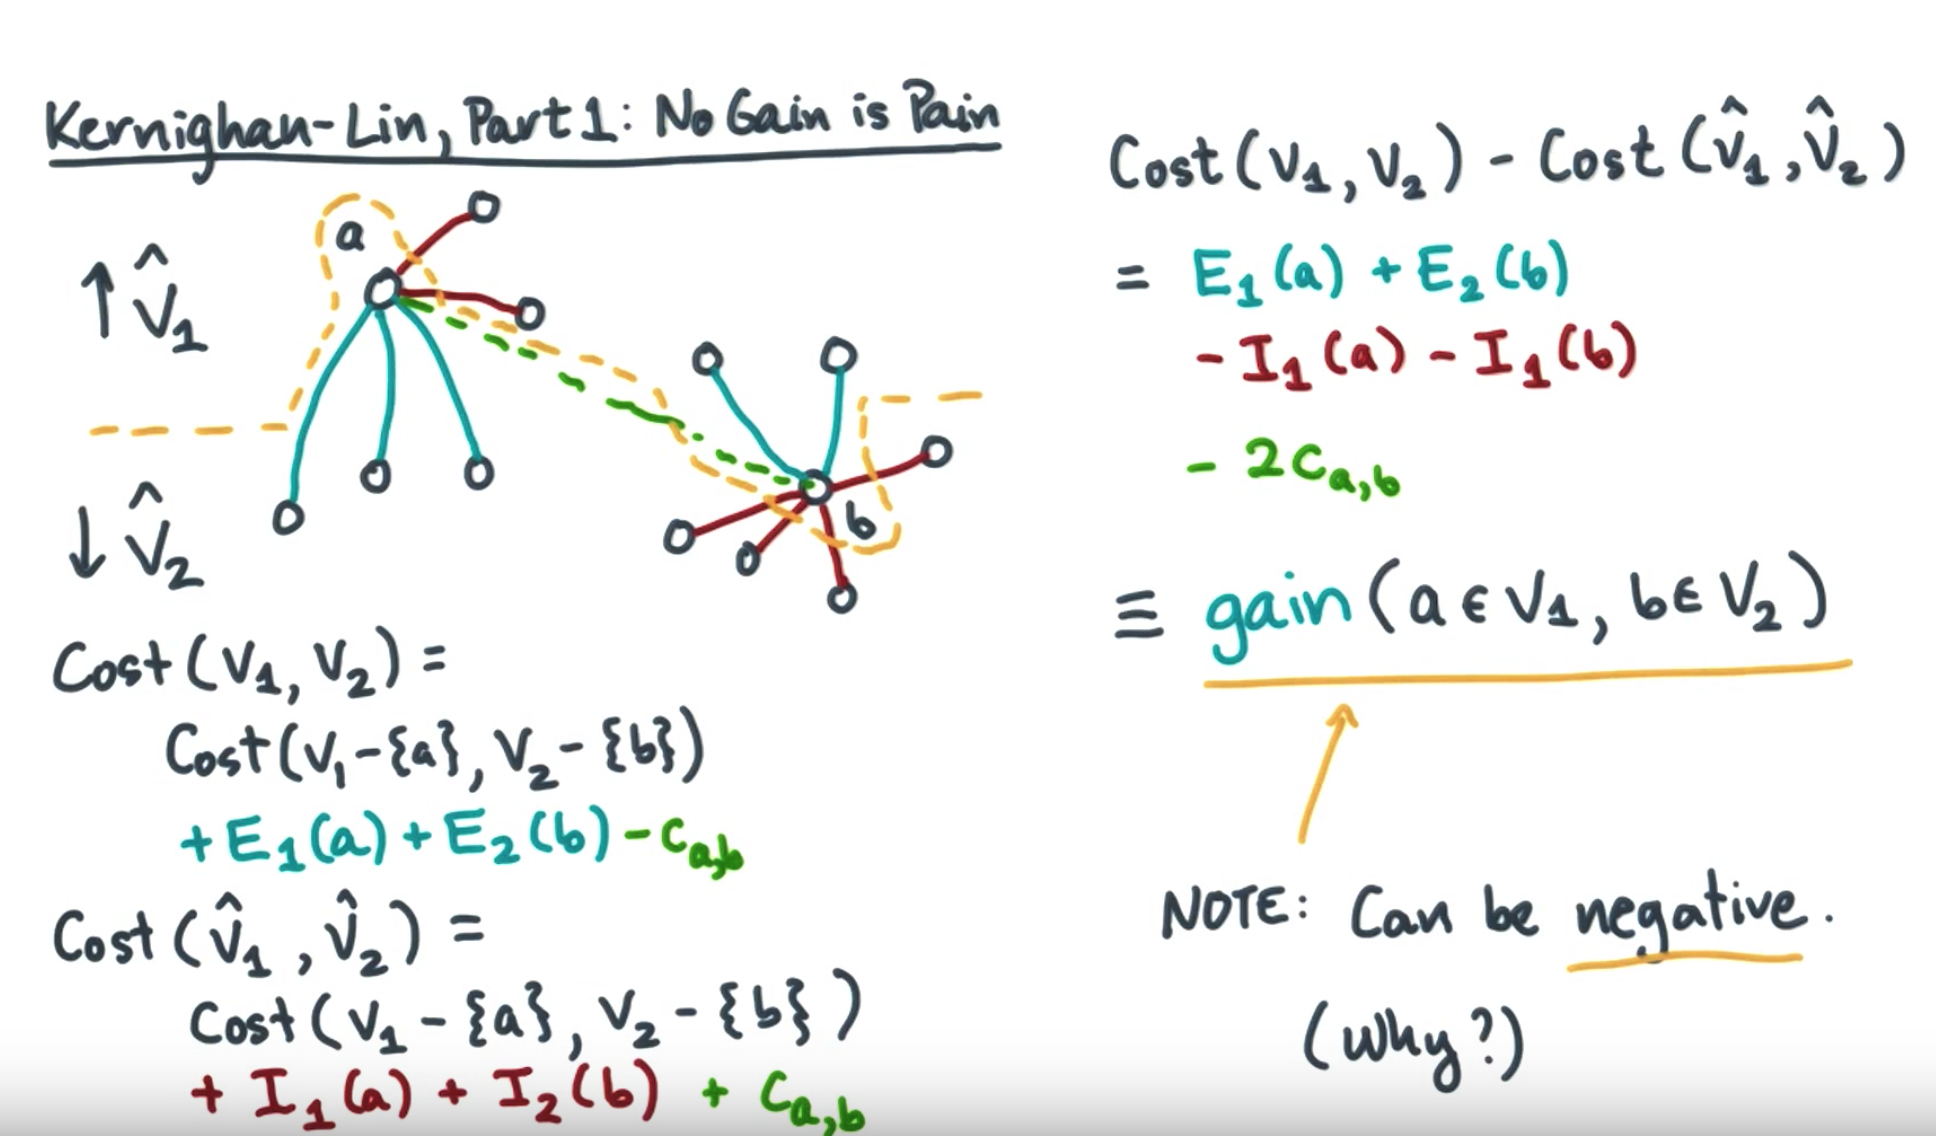 Kernighan-Lin, Part 1: No Gain is Pain
a
↑ V̂₁
↓ V̂₂
b
Cost(V₁, V₂) =
Cost(V₁-{a}, V₂-{b})
+ E₁(a) + E₂(b) - c_{a,b}
Cost(V̂₁, V̂₂) =
Cost(V₁-{a}, V₂-{b})
+ I₁(a) + I₂(b) + c_{a,b}
Cost(V₁, V₂) - Cost(V̂₁, V̂₂)
= E₁(a) + E₂(b)
- I₁(a) - I₁(b)
- 2c_{a,b}
≡ gain(a∈V₁, b∈V₂)
NOTE: Can be negative.
(Why?)